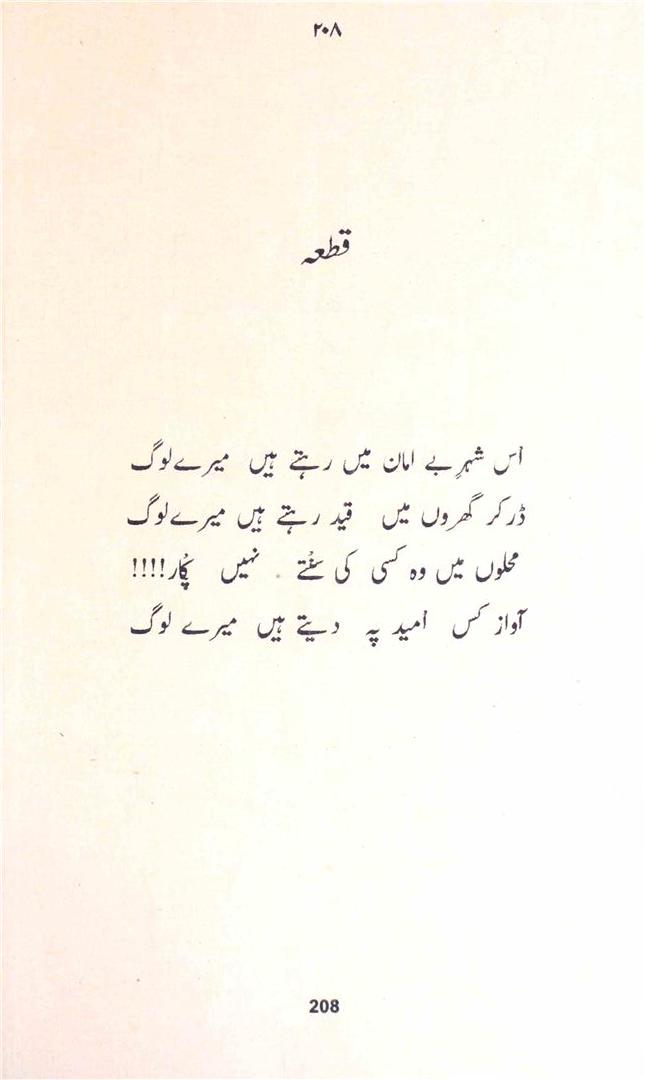 ۲۰۸
قطعہ
اُس شہرِ بے امان میں رہتے ہیں میرے لوگ
ڈر کر گھروں میں قید رہتے ہیں میرے لوگ
محلوں میں وہ کسی کی سُنتے نہیں پُکار!!!!
آواز کس اُمید پہ دیتے ہیں میرے لوگ
208